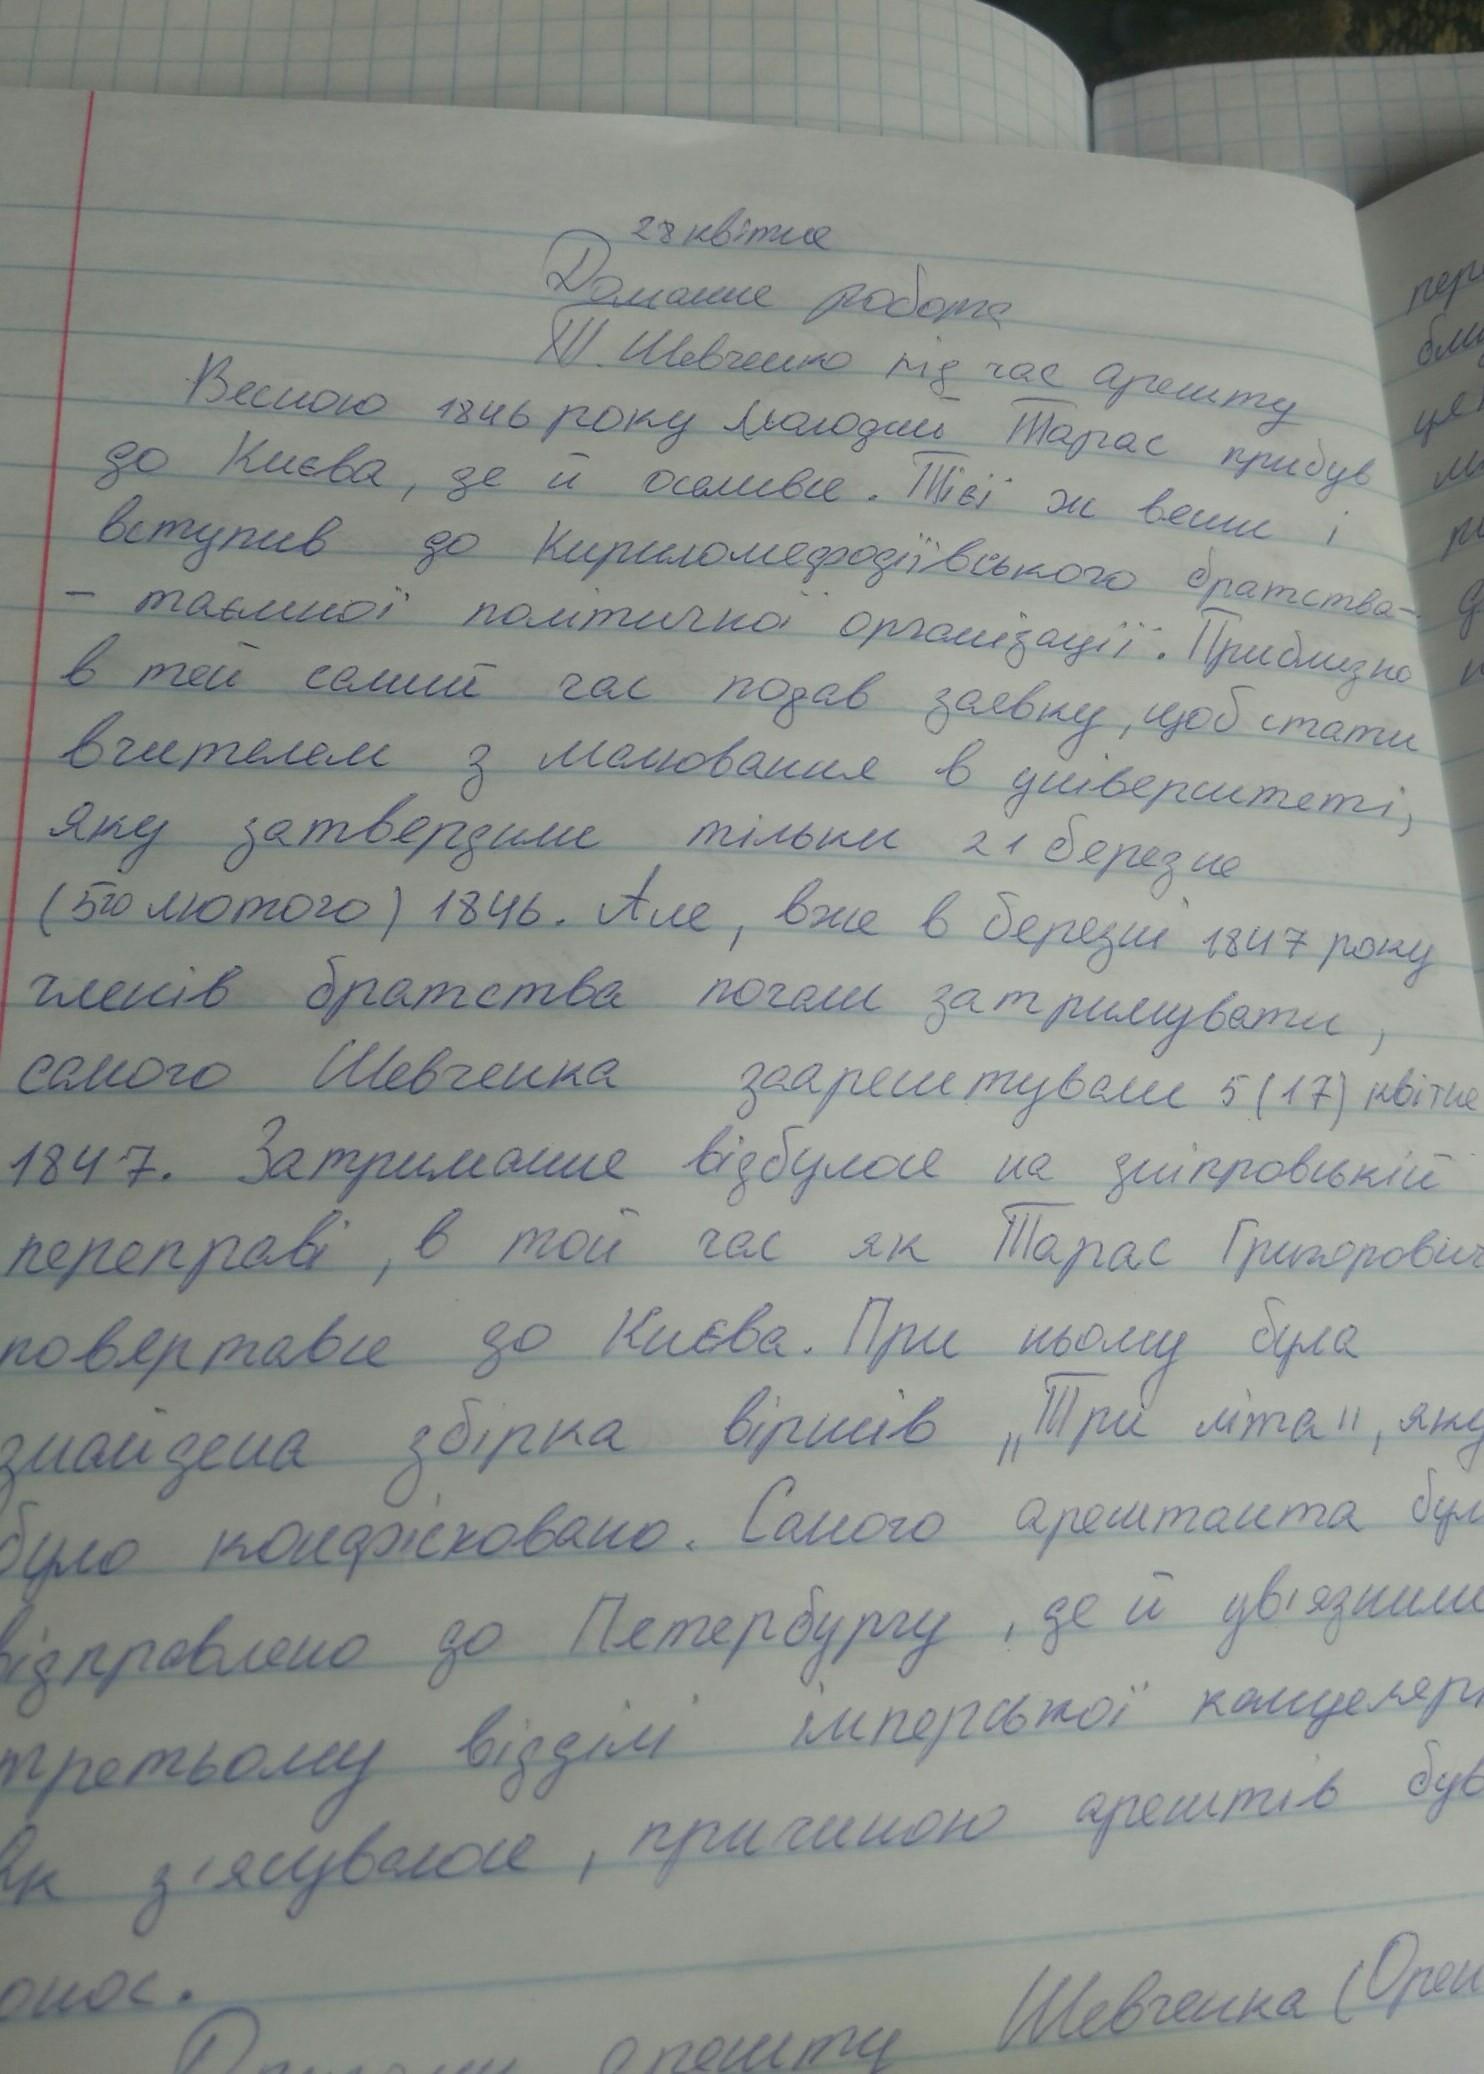 28 квітня
Домашня робота
Т. Шевченко під час арешту
Весною 1846 року молодий Тарас прибув
до Києва, де й оселився. Тієї ж весни і
вступив до Кириломефодіївського братства-
- таємної політичної організації. Приблизно
в той самий час подав заявку, щоб стати
вчителем з малювання в університеті,
яку затвердили тільки 21 березня
(5го лютого) 1846. Але, вже в березні 1847 року
членів братства почали затримувати,
самого Шевченка заарештували 5 (17) квітня
1847. Затримання відбулося на дніпровській
переправі, в той час як Тарас Григорович
повертався до Києва. При ньому була
знайдена збірка віршів „Три літа", яку
було конфісковано. Самого арештанта бул
відправлено до Петербургу, де й ув'язнили
третьому відділі імперської канцеляр
Як з'ясувалося, причиною арештів був
онос.
арешту Шевченка (Орен